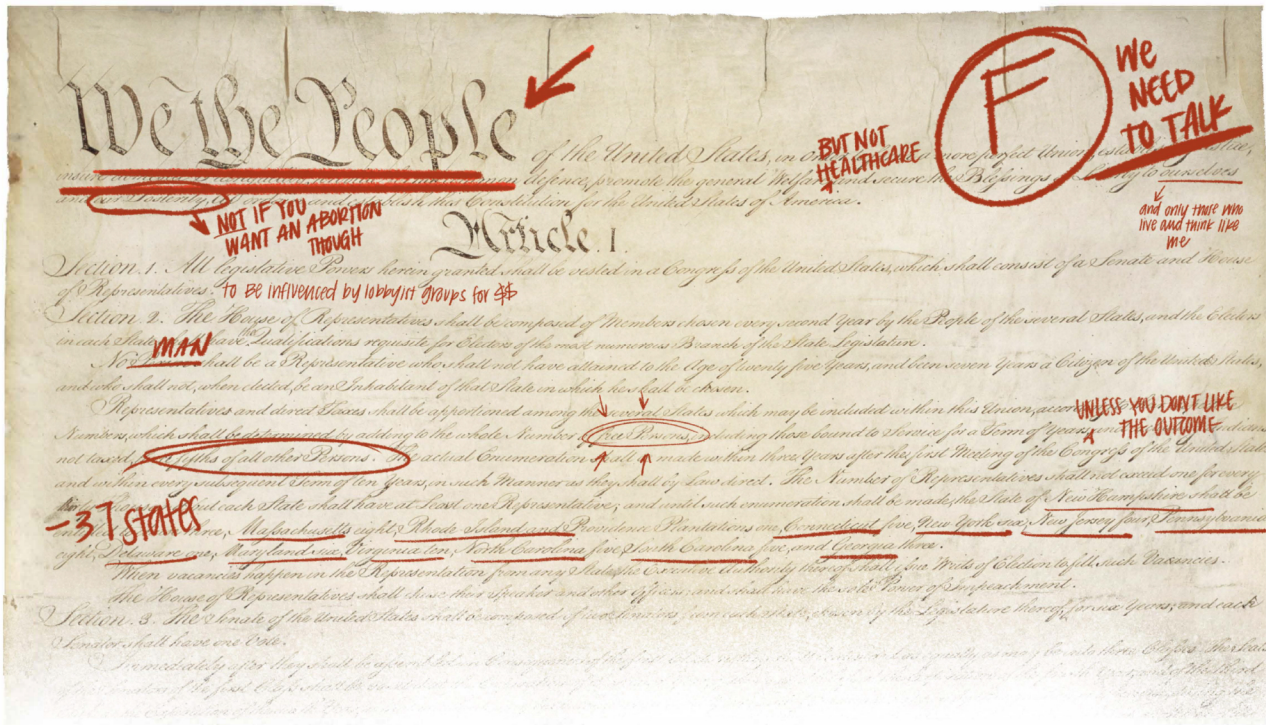 We the People
F
WE
NEED
TO TALK
BUT NOT
HEALTHCARE
of the United States, in more perfect Union,
defence, promote the general Welfare, and secure the Blessings of to ourselves
and our Posterity, establish this Constitution for the United States of America.
and only those who
live and think like
me
NOT IF YOU
WANT AN ABORTION
THOUGH
Article. I.
Section. 1. All legislative Powers herein granted shall be vested in a Congress of the United States, which shall consist of a Senate and House
of Representatives.
to BE influenced by lobbyist groups for $$
Section. 2. The House of Representatives shall be composed of Members chosen every second Year by the People of the several States, and the Electors
in each State have the Qualifications requisite for Electors of the most numerous Branch of the State Legislature.
MAN
No shall be a Representative who shall not have attained to the Age of twenty five Years, and been seven Years a Citizen of the United States,
and who shall not, when elected, be an Inhabitant of that State in which he shall be chosen.
Representatives and direct Taxes shall be apportioned among the several States which may be included within this Union,
UNLESS YOU DON'T LIKE
THE OUTCOME
Numbers, which shall be determined by adding to the whole Number free Persons, including those bound to Service for a Term of Years,
not taxed, fifths of all other Persons. The actual Enumeration shall made within three Years after the first Meeting of the Congress of the United States
and within every subsequent Term of ten Years, in such Manner as they shall by Law direct. The Number of Representatives shall not exceed one for every
each State shall have at Least one Representative; and until such enumeration shall be made, the State of New Hampshire shall be
-37 states
three, Massachusetts eight, Rhode Island and Providence Plantations one, Connecticut five, New York six, New Jersey four, Pennsylvania
eight, Delaware one, Maryland six, Virginia ten, North Carolina five, South Carolina five, and Georgia three.
When vacancies happen in the Representation from any State, the Executive Authority thereof shall issue Writs of Election to fill such Vacancies.
The House of Representatives shall chuse their Speaker and other Officers; and shall have the sole Power of Impeachment.
Section. 3. The Senate of the United States shall be composed of two Senators from each State, chosen by the Legislature thereof, for six Years; and each
Senator shall have one Vote.
Immediately after they shall be